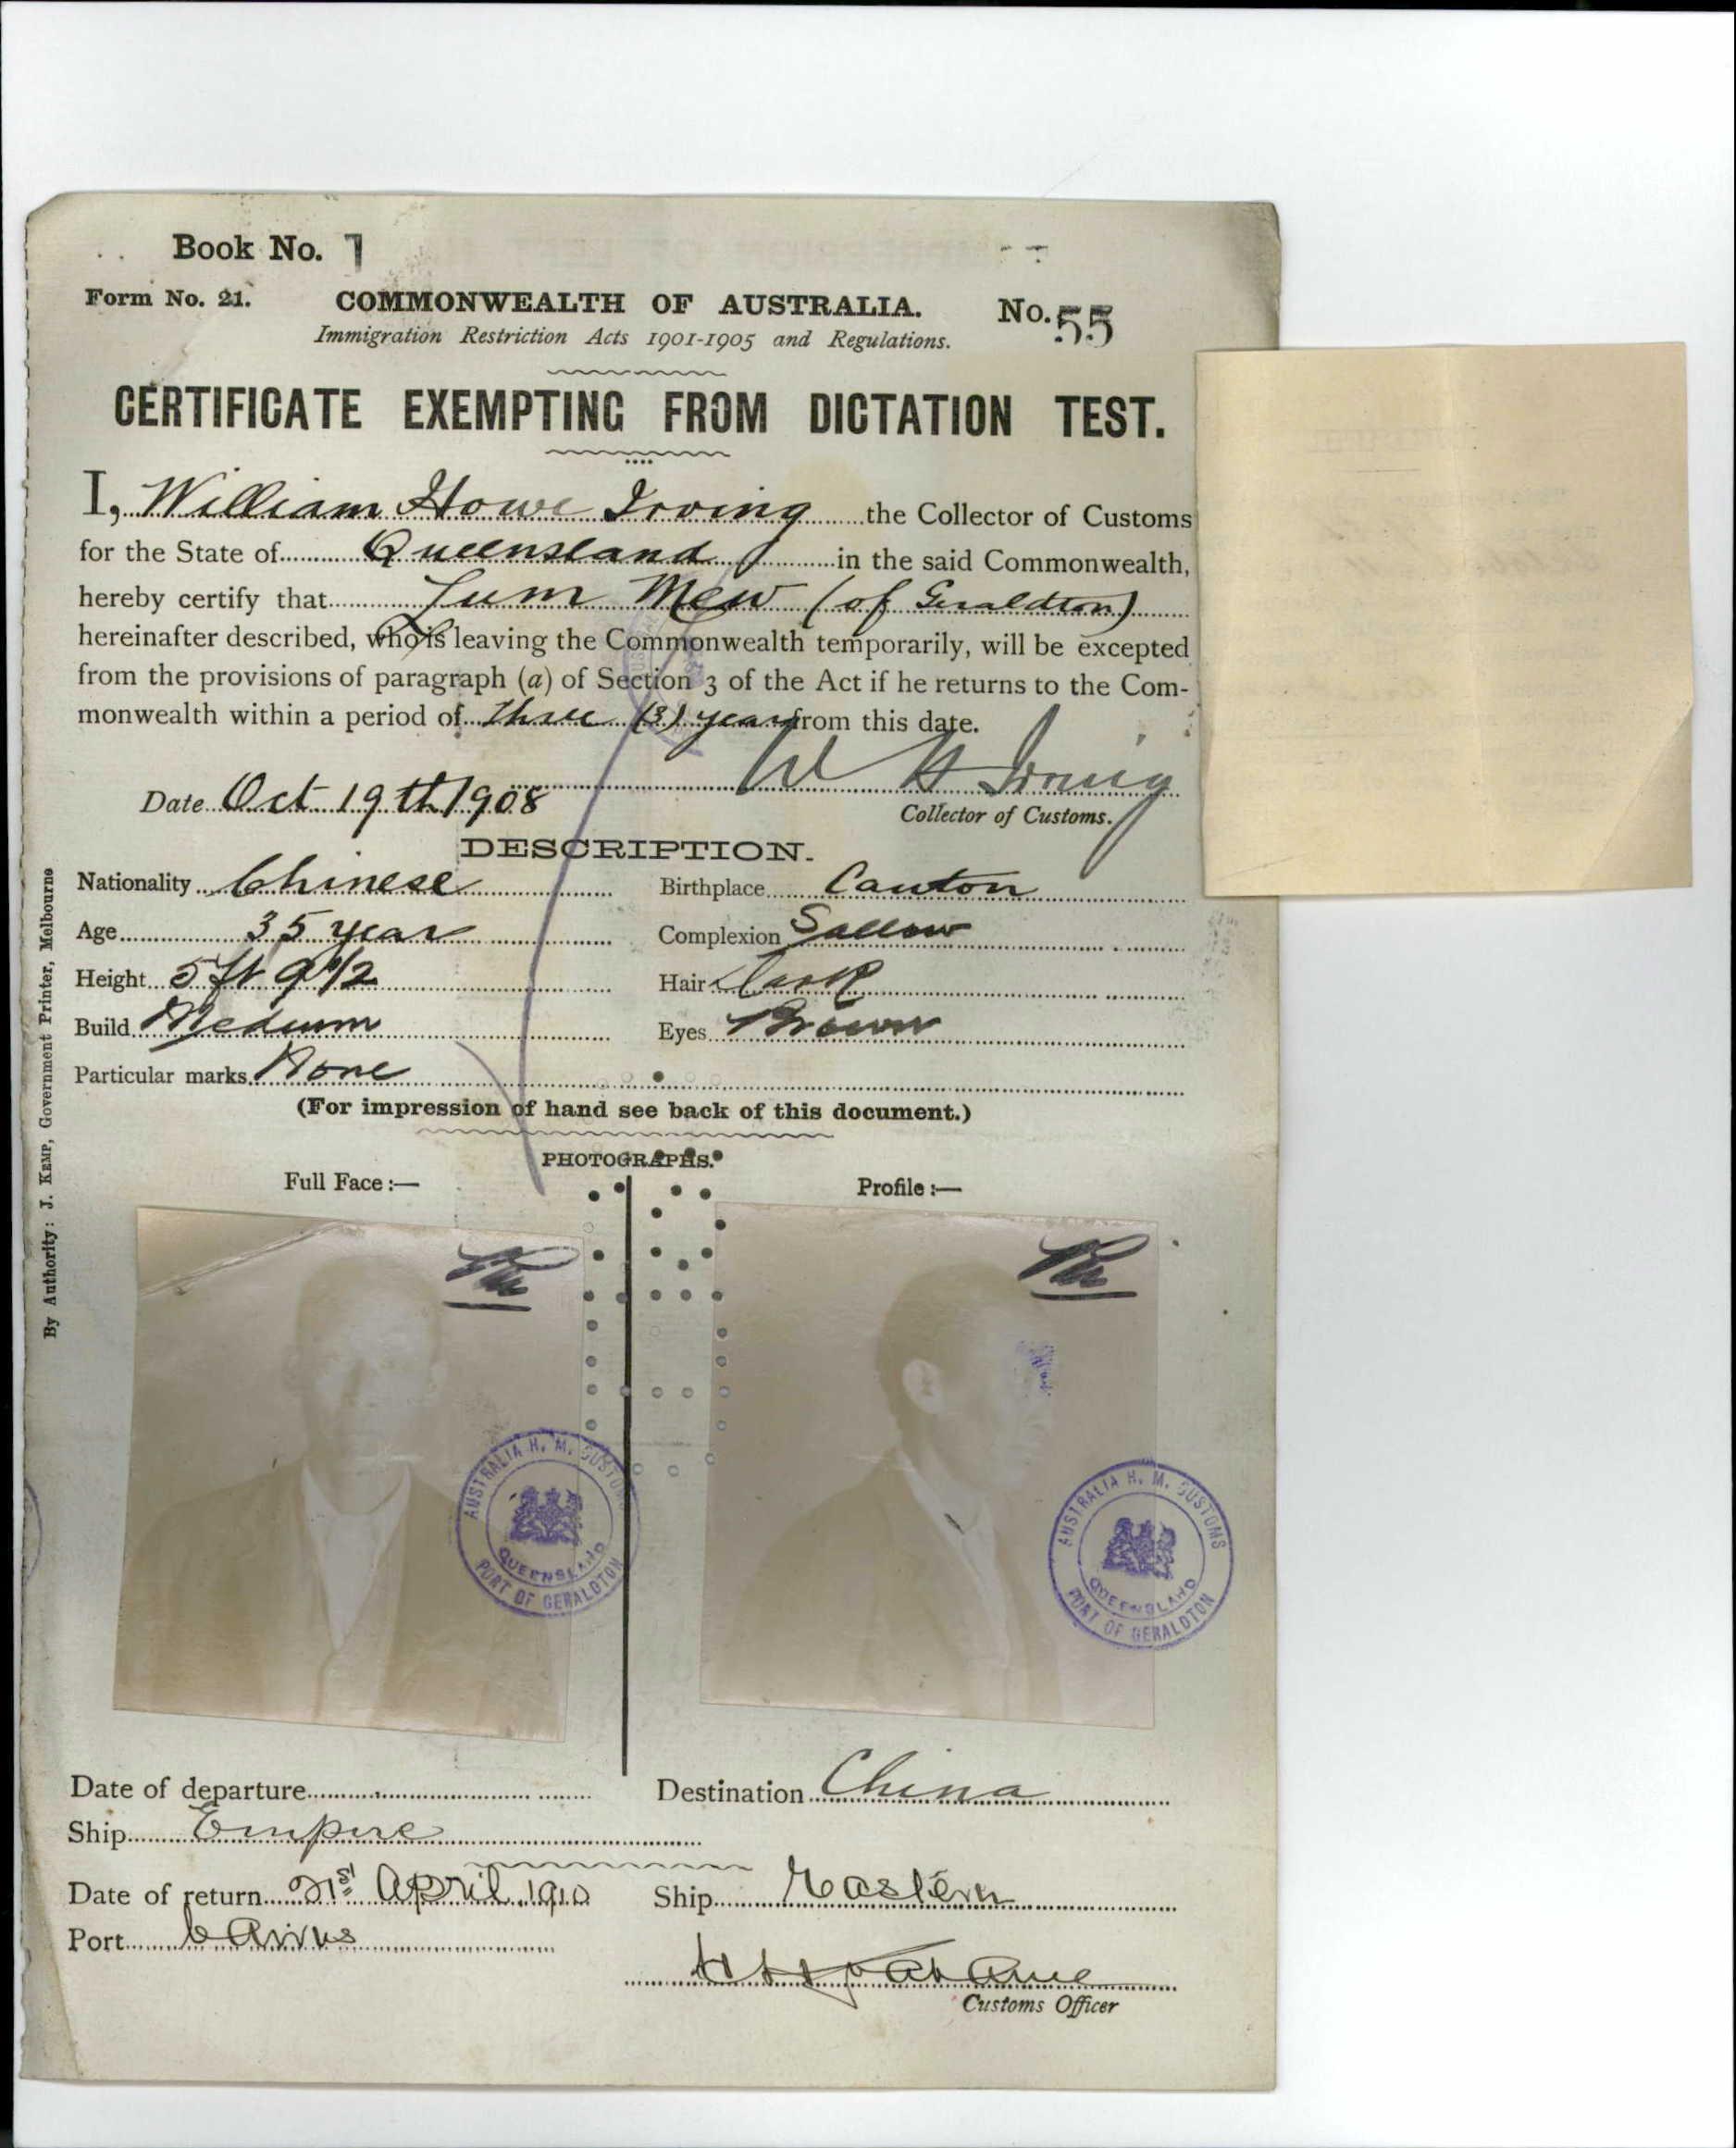 Book No. 1
Form No. 21. COMMONWEALTH OF AUSTRALIA. No. 55
Immigration Restriction Acts 1901-1905 and Regulations.
CERTIFICATE EXEMPTING FROM DICTATION TEST.
I, William Howe Irving the Collector of Customs
for the State of Queensland in the said Commonwealth,
hereby certify that Lum Mew (of Geraldton)
hereinafter described, who is leaving the Commonwealth temporarily, will be excepted
from the provisions of paragraph (a) of Section 3 of the Act if he returns to the Com-
monwealth within a period of three (3) years from this date.
W H Irving
Date Oct 19th 1908
Collector of Customs.
DESCRIPTION.
Nationality Chinese Birthplace Canton
Age 35 years Complexion Sallow
Height 5 ft 9 1/2 Hair Dark
Build Medium Eyes Brown
Particular marks None
(For impression of hand see back of this document.)
PHOTOGRAPHS.
Full Face :— Profile :—
AUSTRALIA H. M. CUSTOMS
QUEENSLAND
PORT OF GERALDTON
AUSTRALIA H. M. CUSTOMS
QUEENSLAND
PORT OF GERALDTON
Date of departure Destination China
Ship Empire
Date of return 21st April 1910 Ship Eastern
Port Cairns
Customs Officer
By Authority: J. KEMP, Government Printer, Melbourne